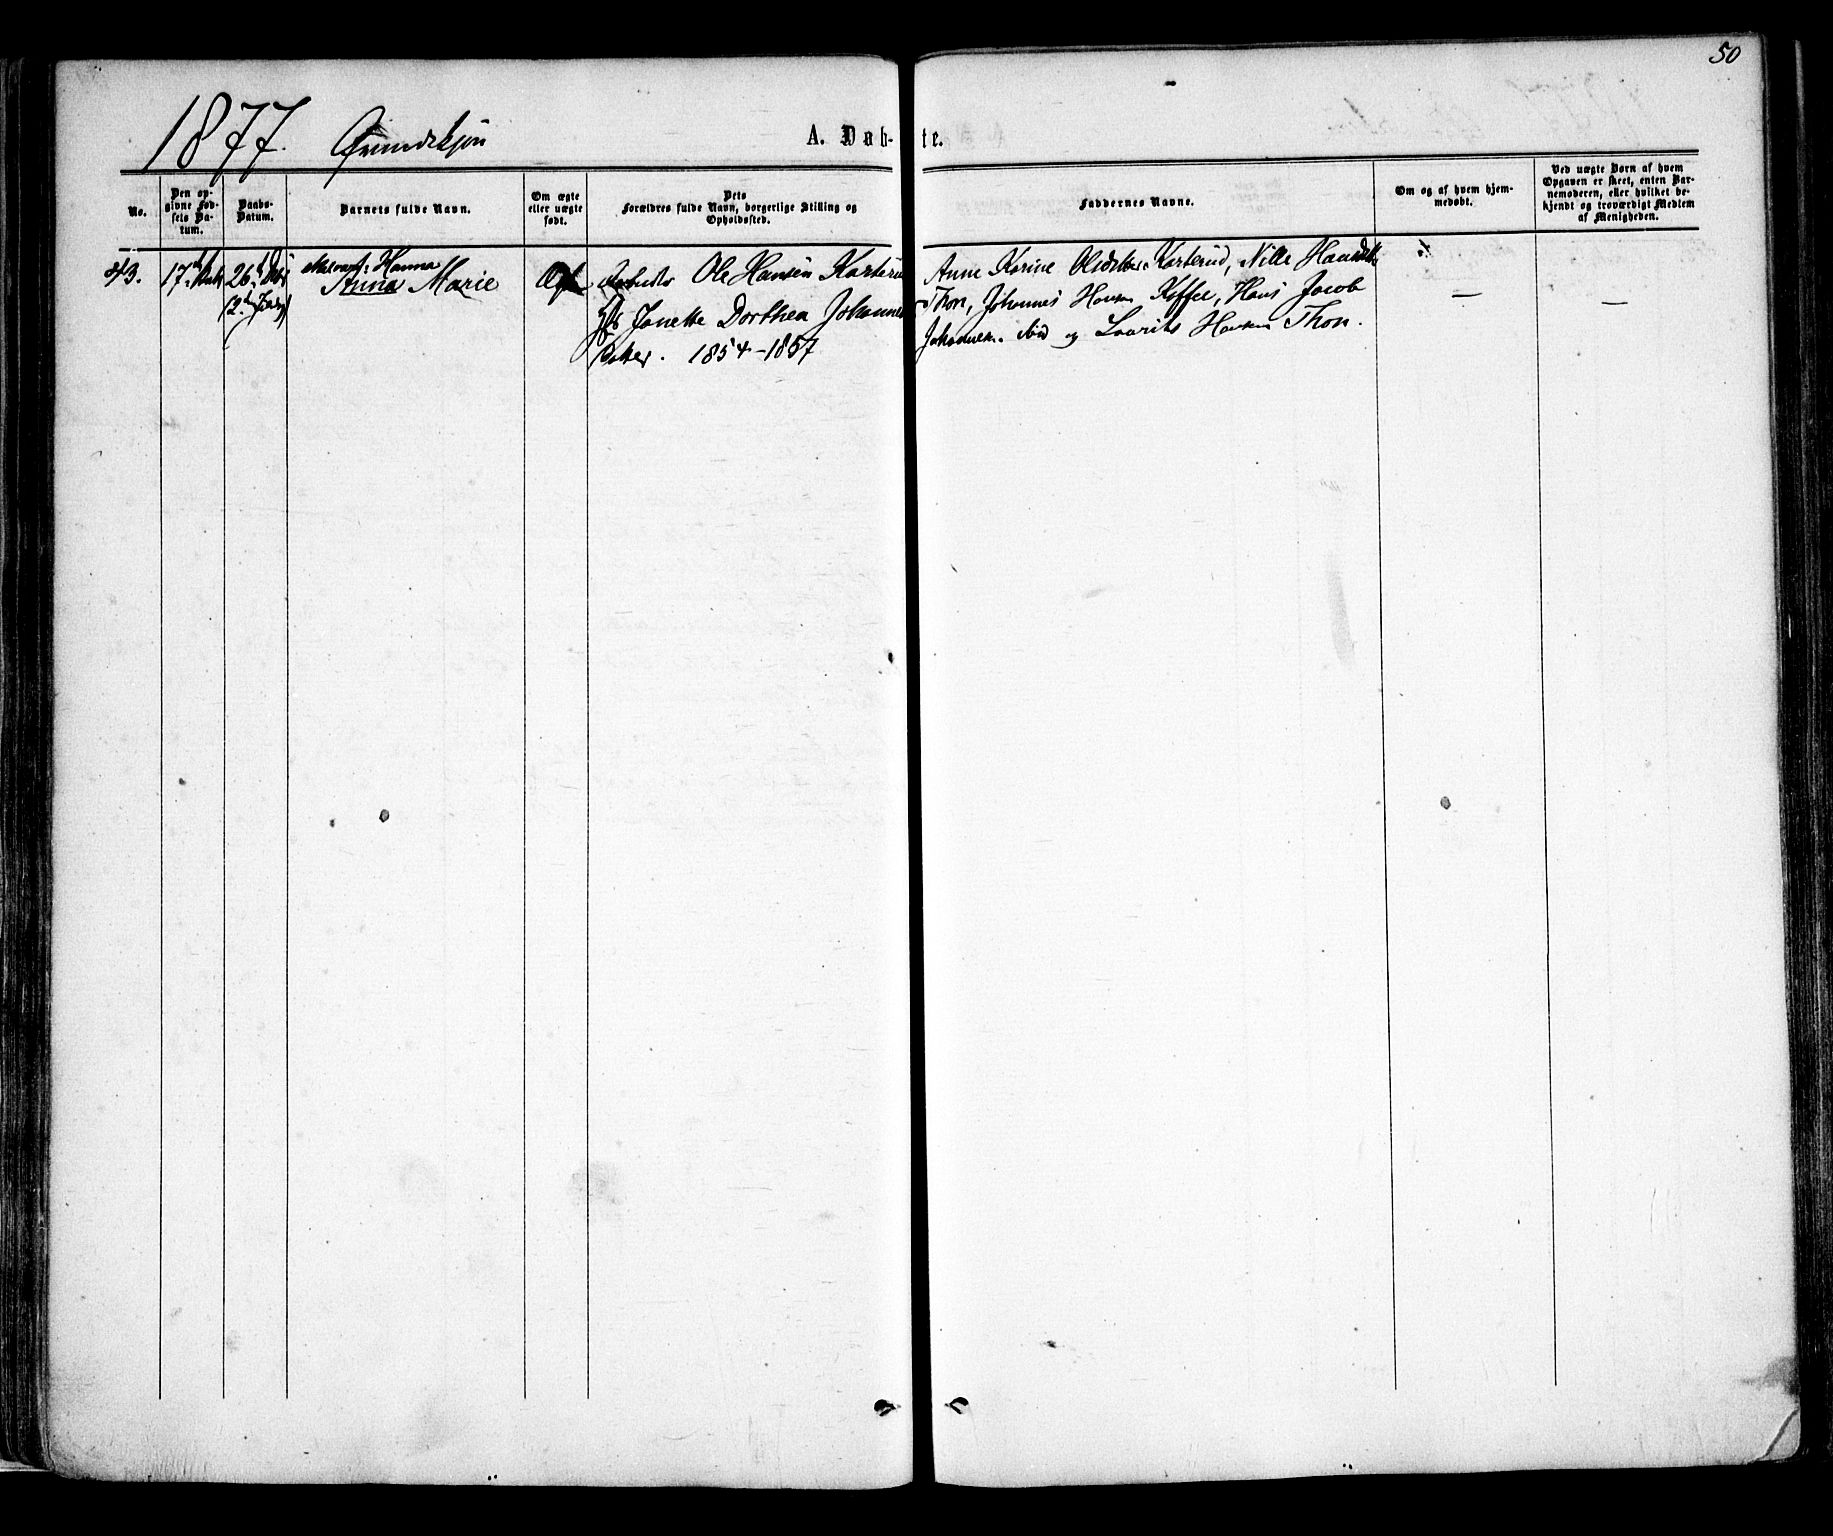 50
1877. Qvindekjøn
A. Døbte.
No.
Den opgivne Fødsels Datum.
Daabs-Datum.
Barnets fulde Navn.
Om ægte eller uægte født.
Dets Forældres fulde Navn, borgerlige Stilling og Opholdssted.
Faddernes Navne.
Om og af hvem hjemmedøbt.
Ved uægte Børn af hvem Opgaven er skeet, enten Barnemoderen, eller hvilket bekjendt og troværdigt Medlem af Menigheden.
43.
17
26
(2.
Hanna
Anna Marie
Ægte
Ole Hansen
Janette Dorthea Johannes
datter. 1854-1857
Anne Karine Olsdatter Kasterud, Nille Hansdatter
Thon, Johannes Hansen Hans Jacob
Johannesen ibid og Laurits Hansen Thon.
—
—